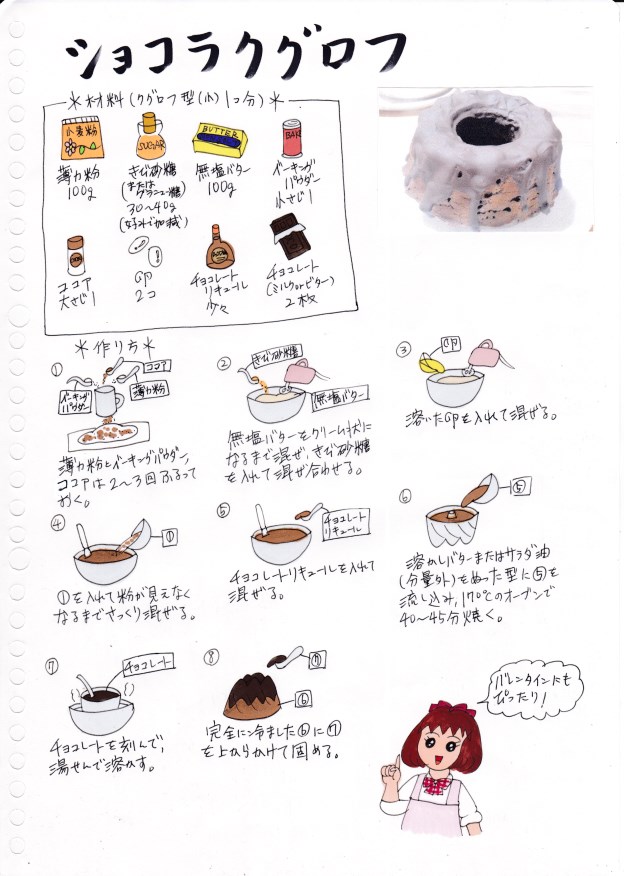 ショコラクグロフ
＊材料(クグロフ型(小)1コ分)＊
小麦粉
SUGAR
BUTTER
BAK
薄力粉
100g
きび砂糖
(または
グラニュー糖)
30〜40g
(好みで加減)
無塩バター
100g
ベーキング
パウダー
小さじ1
ココア
大さじ1
卵
2コ
チョコレート
リキュール
少々
チョコレート
(ミルクorビター)
2枚
＊作り方＊
①
ココア
ベーキング
パウダー
薄力粉
薄力粉とベーキングパウダー,
ココアは2〜3回ふるって
おく。
②
きび砂糖
無塩バター
無塩バターをクリーム状に
なるまで混ぜ,きび砂糖
を入れて混ぜ合わせる。
③
卵
溶いた卵を入れて混ぜる。
④
①
①を入れて粉が見えなく
なるまでさっくり混ぜる。
⑤
チョコレート
リキュール
チョコレートリキュールを入れて
混ぜる。
⑥
⑤
溶かしバターまたはサラダ油
(分量外)をぬった型に⑤を
流し込み,170℃のオーブンで
40〜45分焼く。
⑦
チョコレート
チョコレートを刻んで,
湯せんで溶かす。
⑧
⑦
⑥
完全に冷ました⑥に⑦
を上からかけて固める。
バレンタインにも
ぴったり!